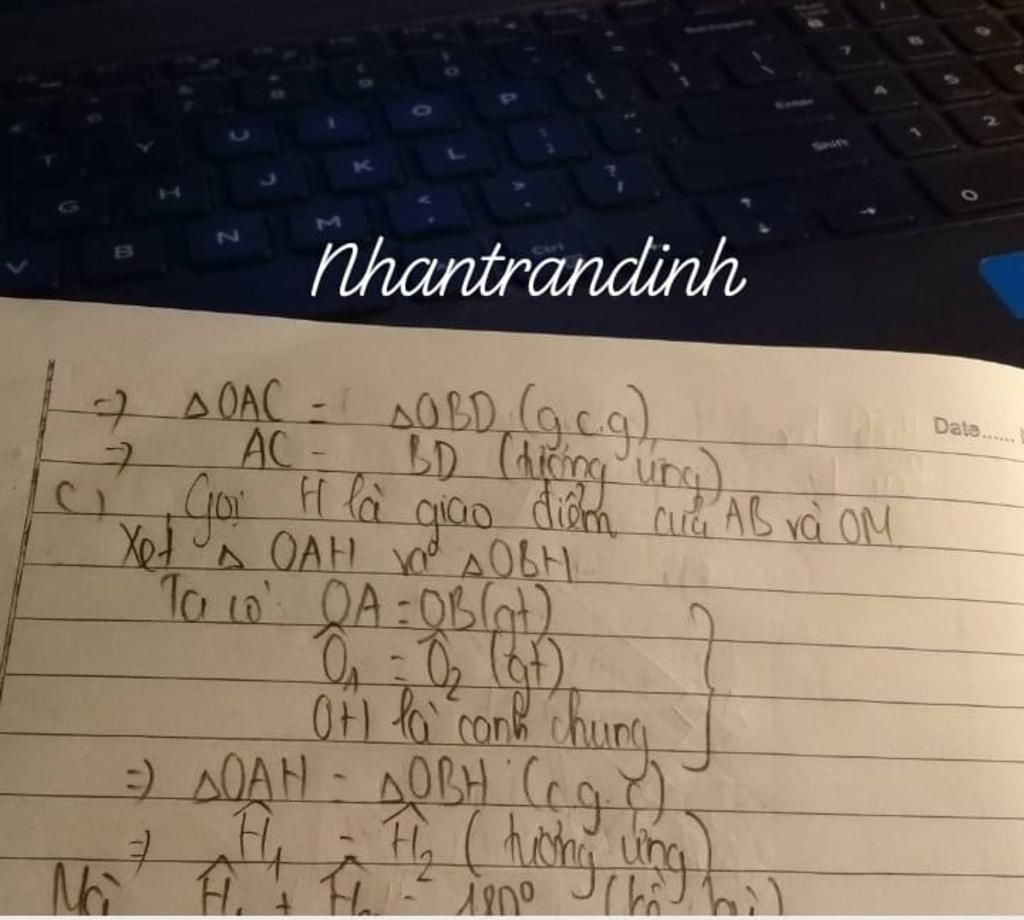 Nhantrandinh
Date......
=> △OAC = △OBD (g.c.g)
=> AC = BD (tương ứng)
c) Gọi H là giao điểm của AB và OM
Xét △ OAH và △OBH
Ta có: OA = OB (gt)
Ô₁ = Ô₂ (gt)
OH là cạnh chung
=> △OAH = △OBH (c.g.c)
=> Ĥ₁ = Ĥ₂ (tương ứng)
Mà Ĥ₁ + Ĥ₂ = 180° (kề bù)